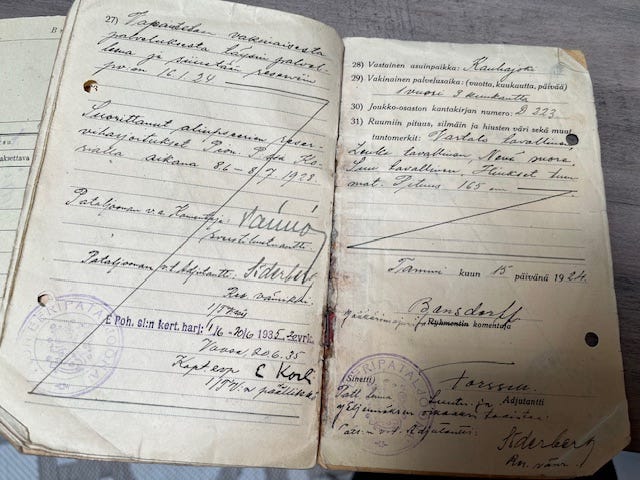 27) Vapautetaan vakinaisesta
palveluksesta täysin palvel-
leena ja siirretään reserviin
pv:on 16.1.24
Suorittanut aliupseerien reser-
viharjoitukset Pion. Patl.
aikana 8.6 – 8.7 1928.
Pataljoonan v.a. Komentaja:
everstiluutnantti.
Pataljoonan v.t. Adjutantti: Söderberg
Res. vänrikki.
E. Poh. sl:n kert. harj. 1/6-20/6 1935
Vaasa 20.6.35
Kapt. evp
päällikkö
28) Vastainen asuinpaikka: Kauhajoki
29) Vakinainen palvelusaika: (vuotta, kuukautta, päivää)
1 vuosi 3 kuukautta
30) Joukko-osaston kantakirjan numero: D 223
31) Ruumiin pituus, silmäin ja hiusten väri sekä muut
tuntomerkit: Vartalo tavallinen
Leuka tavallinen. Nenä suora
Suu tavallinen. Hiukset tum-
mat. Pituus 165 cm
Tammi kuun 15 päivänä 1924.
Bonsdorff
Rykmentin komentaja
Forssell.
(Sinetti)
Adjutantti
Jäljennöksen oikeaksi todistaa:
v.t. Adjutantti:
Söderberg
Res. vänr.